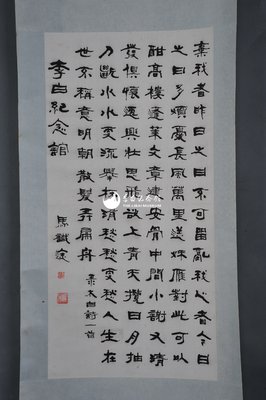 棄我者昨日之日不可留亂我心者今日
之日多煩憂長風萬里送秋雁對此可以
酣高樓蓬萊文章建安骨中間小謝又清
發俱懷逸興壯思飛欲上青天攬日月抽
刀斷水水更流舉杯消愁愁更愁人生在
世不稱意明朝散髮弄扁舟
太白詩一首
李白紀念館
馬識途
THE LIBAI MUSEUM